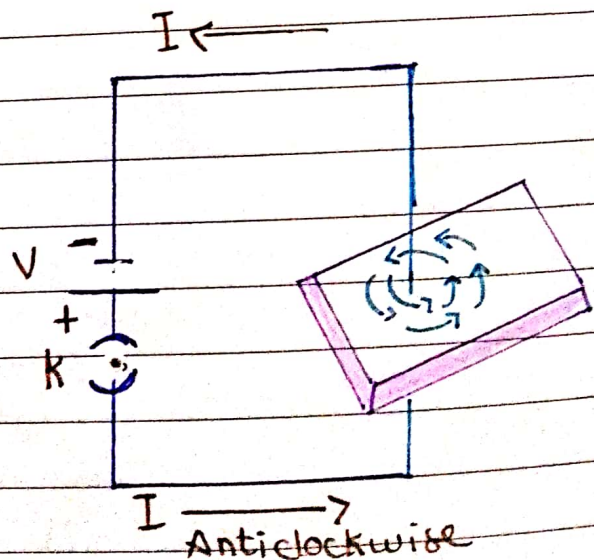 I ←
V -
+
k
I →
Anticlockwise